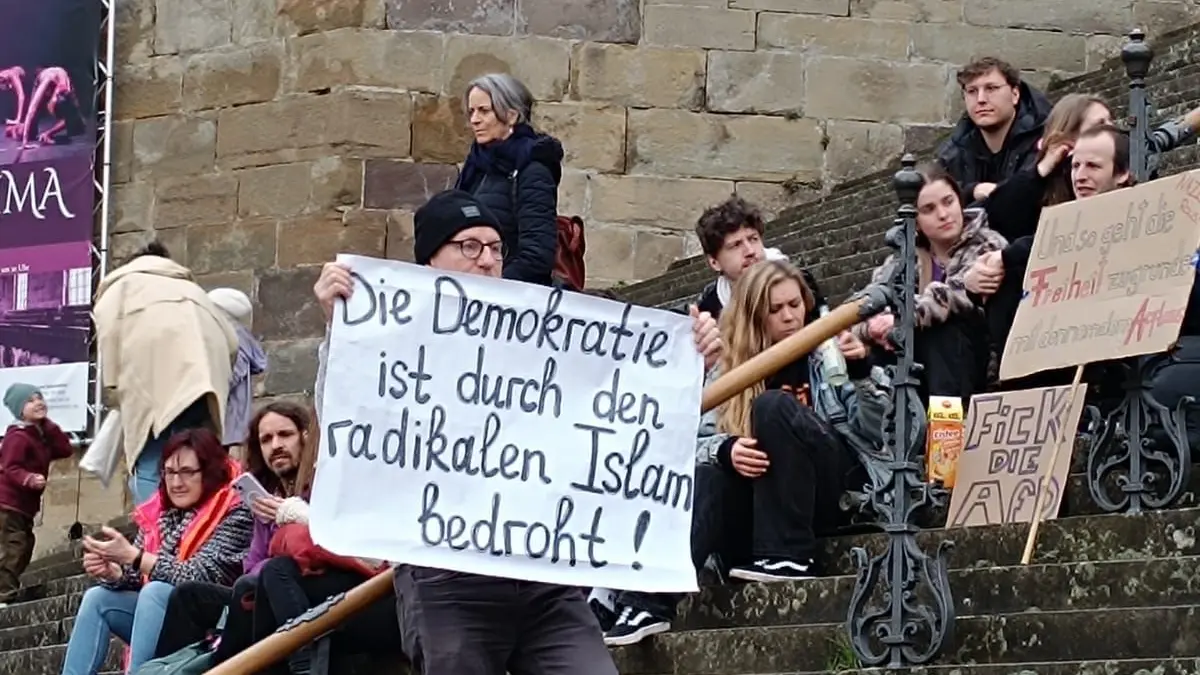 MA
Die Demokratie
ist durch den
radikalen Islam
bedroht!
Und so geht die
Freiheit zugrunde:
mit donnerndem Applaus
FiCK
DiE
AfD